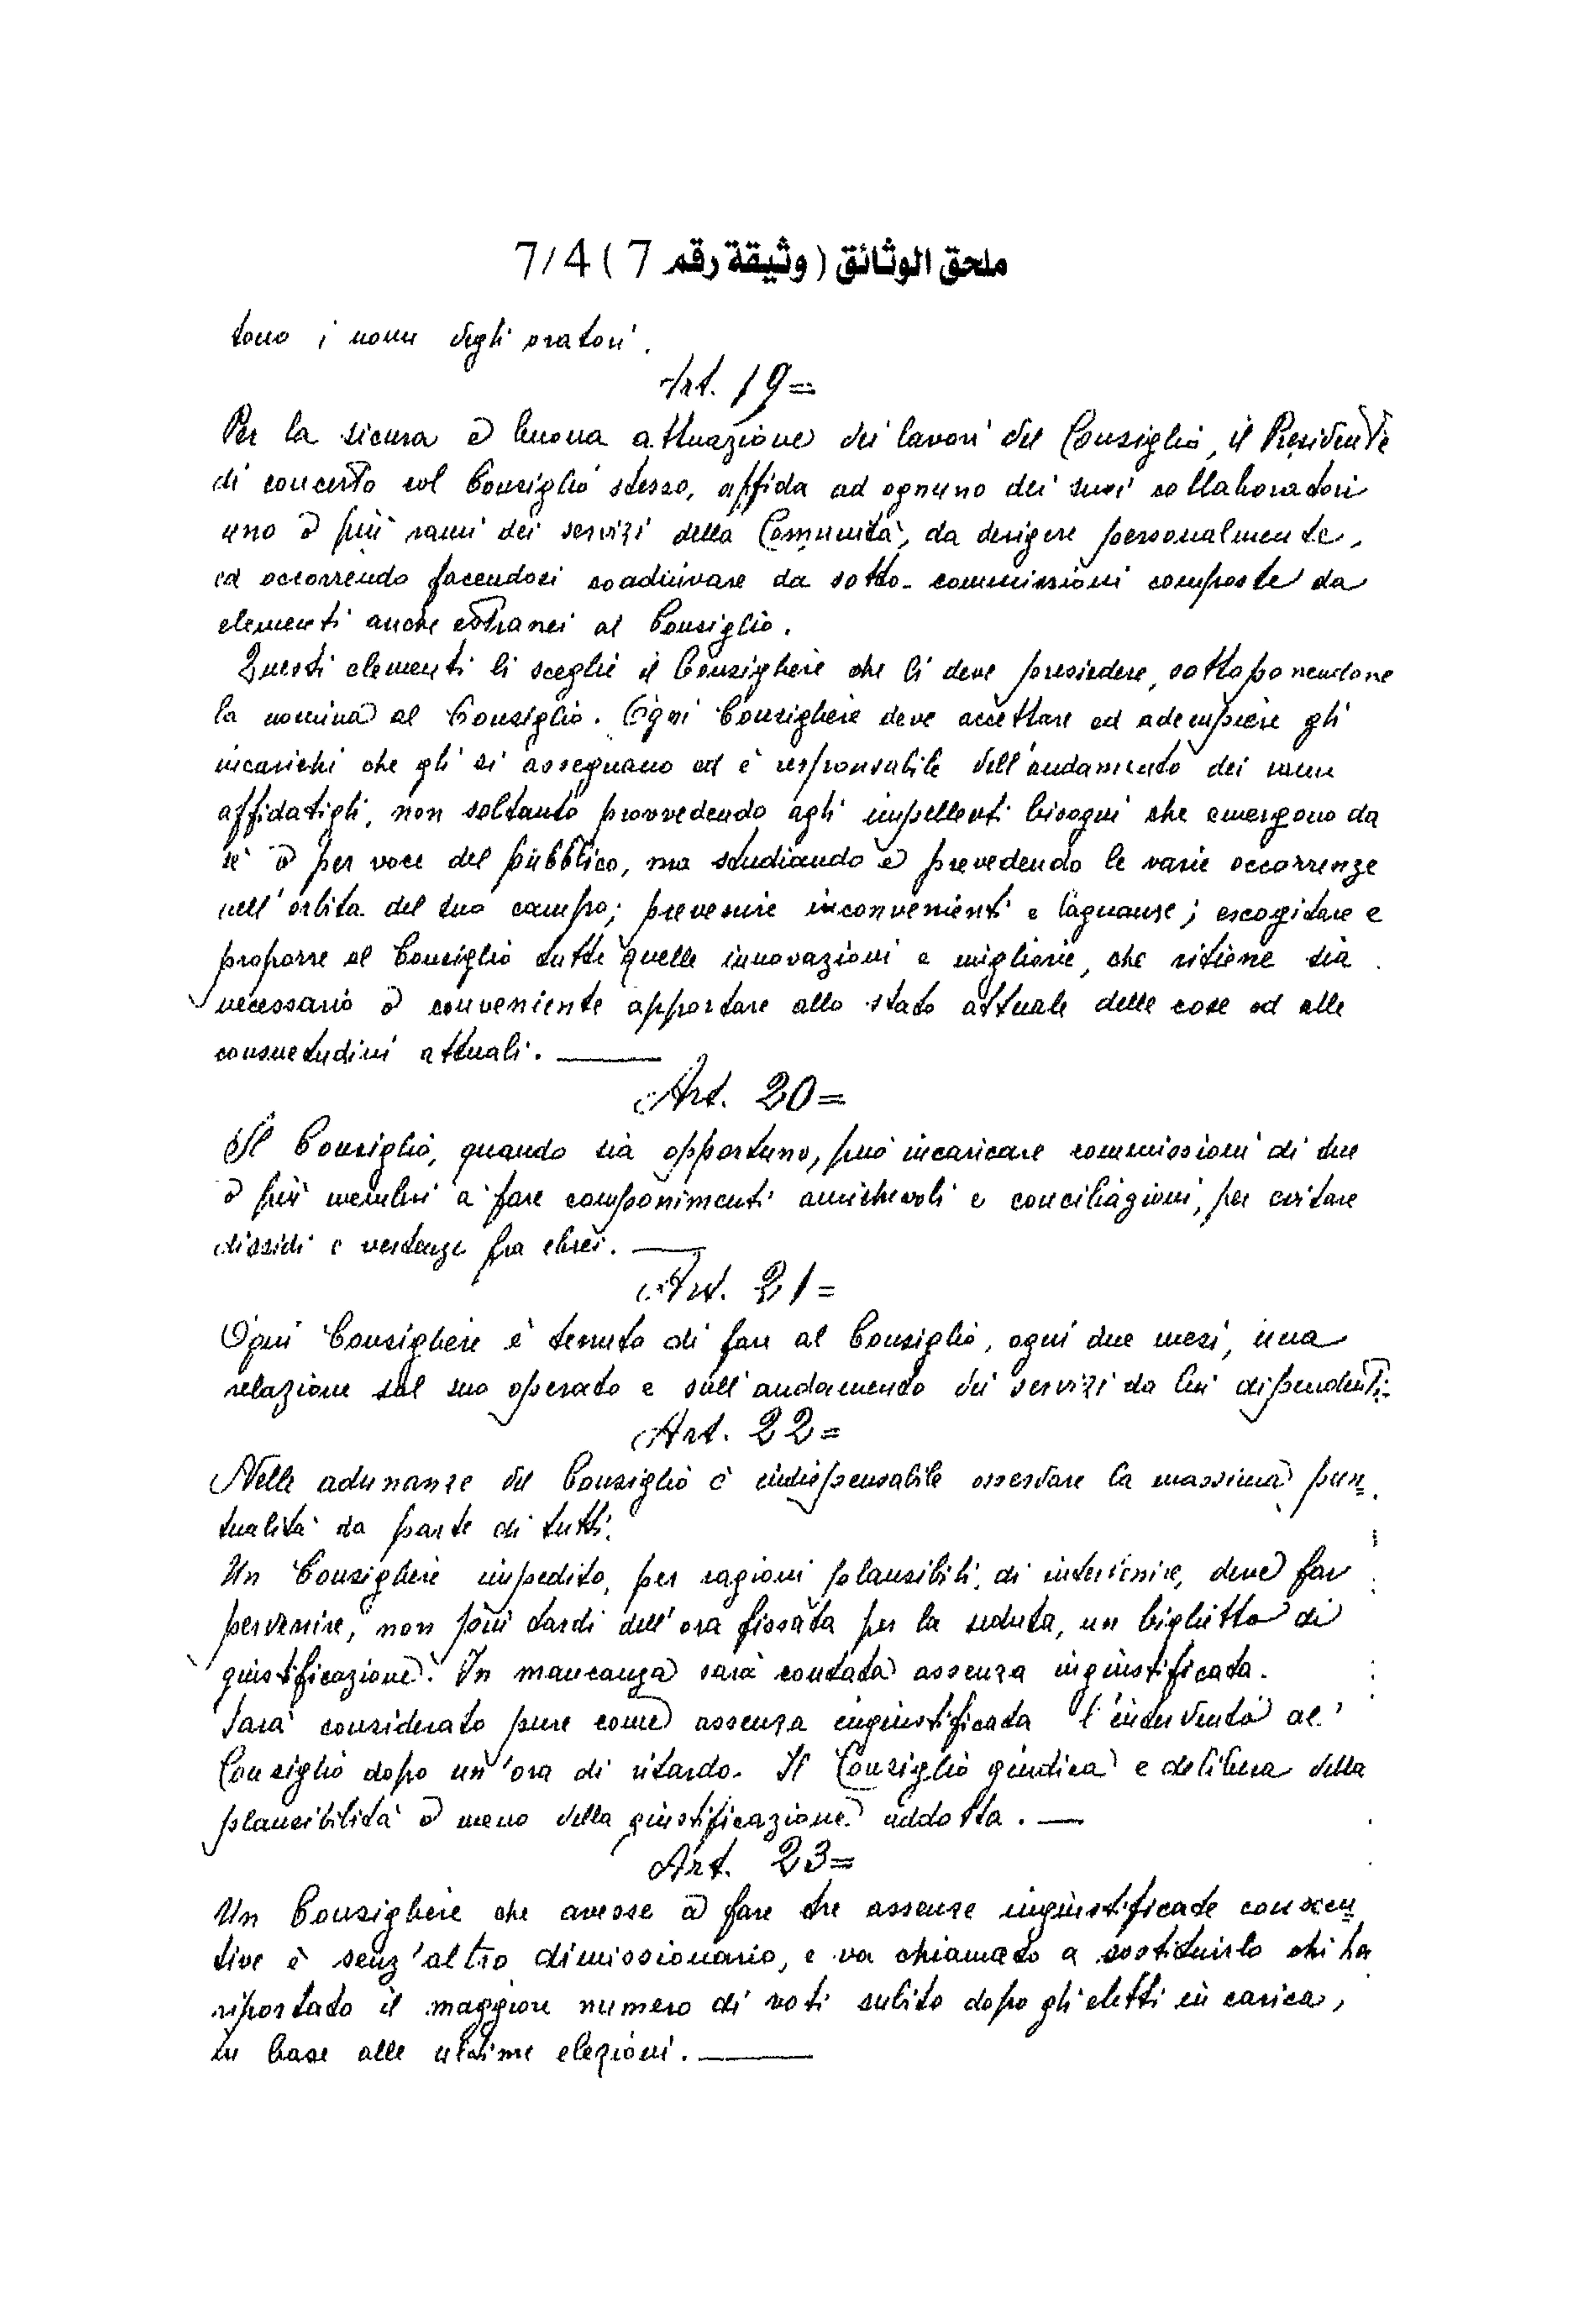 ملحق الوثائق ( وثيقة رقم 7 ) 7/4
tono i nomi degli oratori.
Art. 19=
Per la sicura e buona attuazione dei lavori del Consiglio, il Presidente
di concerto col Consiglio stesso, affida ad ognuno dei suoi collaboratori
uno o più rami dei servizi della Comunità, da dirigere personalmente,
ed occorrendo facendosi coadiuvare da sotto-commissioni composte da
elementi anche estranei al Consiglio.
Questi elementi li sceglie il Consigliere che li deve presiedere, sottoponendone
la nomina al Consiglio. Ogni Consigliere deve accettare ed adempiere gli
incarichi che gli si assegnano ed è responsabile dell'andamento dei rami
affidatigli, non soltanto provvedendo agli impellenti bisogni che emergono da
sè o per voce del pubblico, ma studiando e prevedendo le varie occorrenze
nell'orbita del suo campo; prevenire inconvenienti e lagnanse; escogitare e
proporre al Consiglio tutte quelle innovazioni e migliorie, che ritiene sia
necessario o conveniente apportare allo stato attuale delle cose ed alle
consuetudini attuali.
Art. 20=
Il Consiglio, quando sia opportuno, può incaricare commissioni di due
o più membri a fare componimenti amichevoli e conciliazioni, per evitare
dissidi e vertenze fra ebrei.
Art. 21=
Ogni Consigliere è tenuto di fare al Consiglio, ogni due mesi, una
relazione sul suo operato e sull'andamento dei servizi da lui dipendenti.
Art. 22=
Nelle adunanze del Consiglio è indispensabile osservare la massima pun=
tualità da parte di tutti.
Un Consigliere impedito, per ragioni plausibili, di intervenire, deve far
pervenire, non più tardi dell'ora fissata per la seduta, un biglietto di
giustificazione. In mancanza sarà contata assenza ingiustificata.
Sarà considerato pure come assenza ingiustificata l'intervento al
Consiglio dopo un'ora di ritardo. Il Consiglio giudica e delibera della
plausibilità o meno della giustificazione addotta.
Art. 23=
Un Consigliere che avesse a fare tre assenze ingiustificate consecu=
tive è senz'altro dimissionario, e va chiamato a sostituirlo chi ha
riportato il maggiore numero di voti subito dopo gli eletti in carica,
in base alle ultime elezioni.